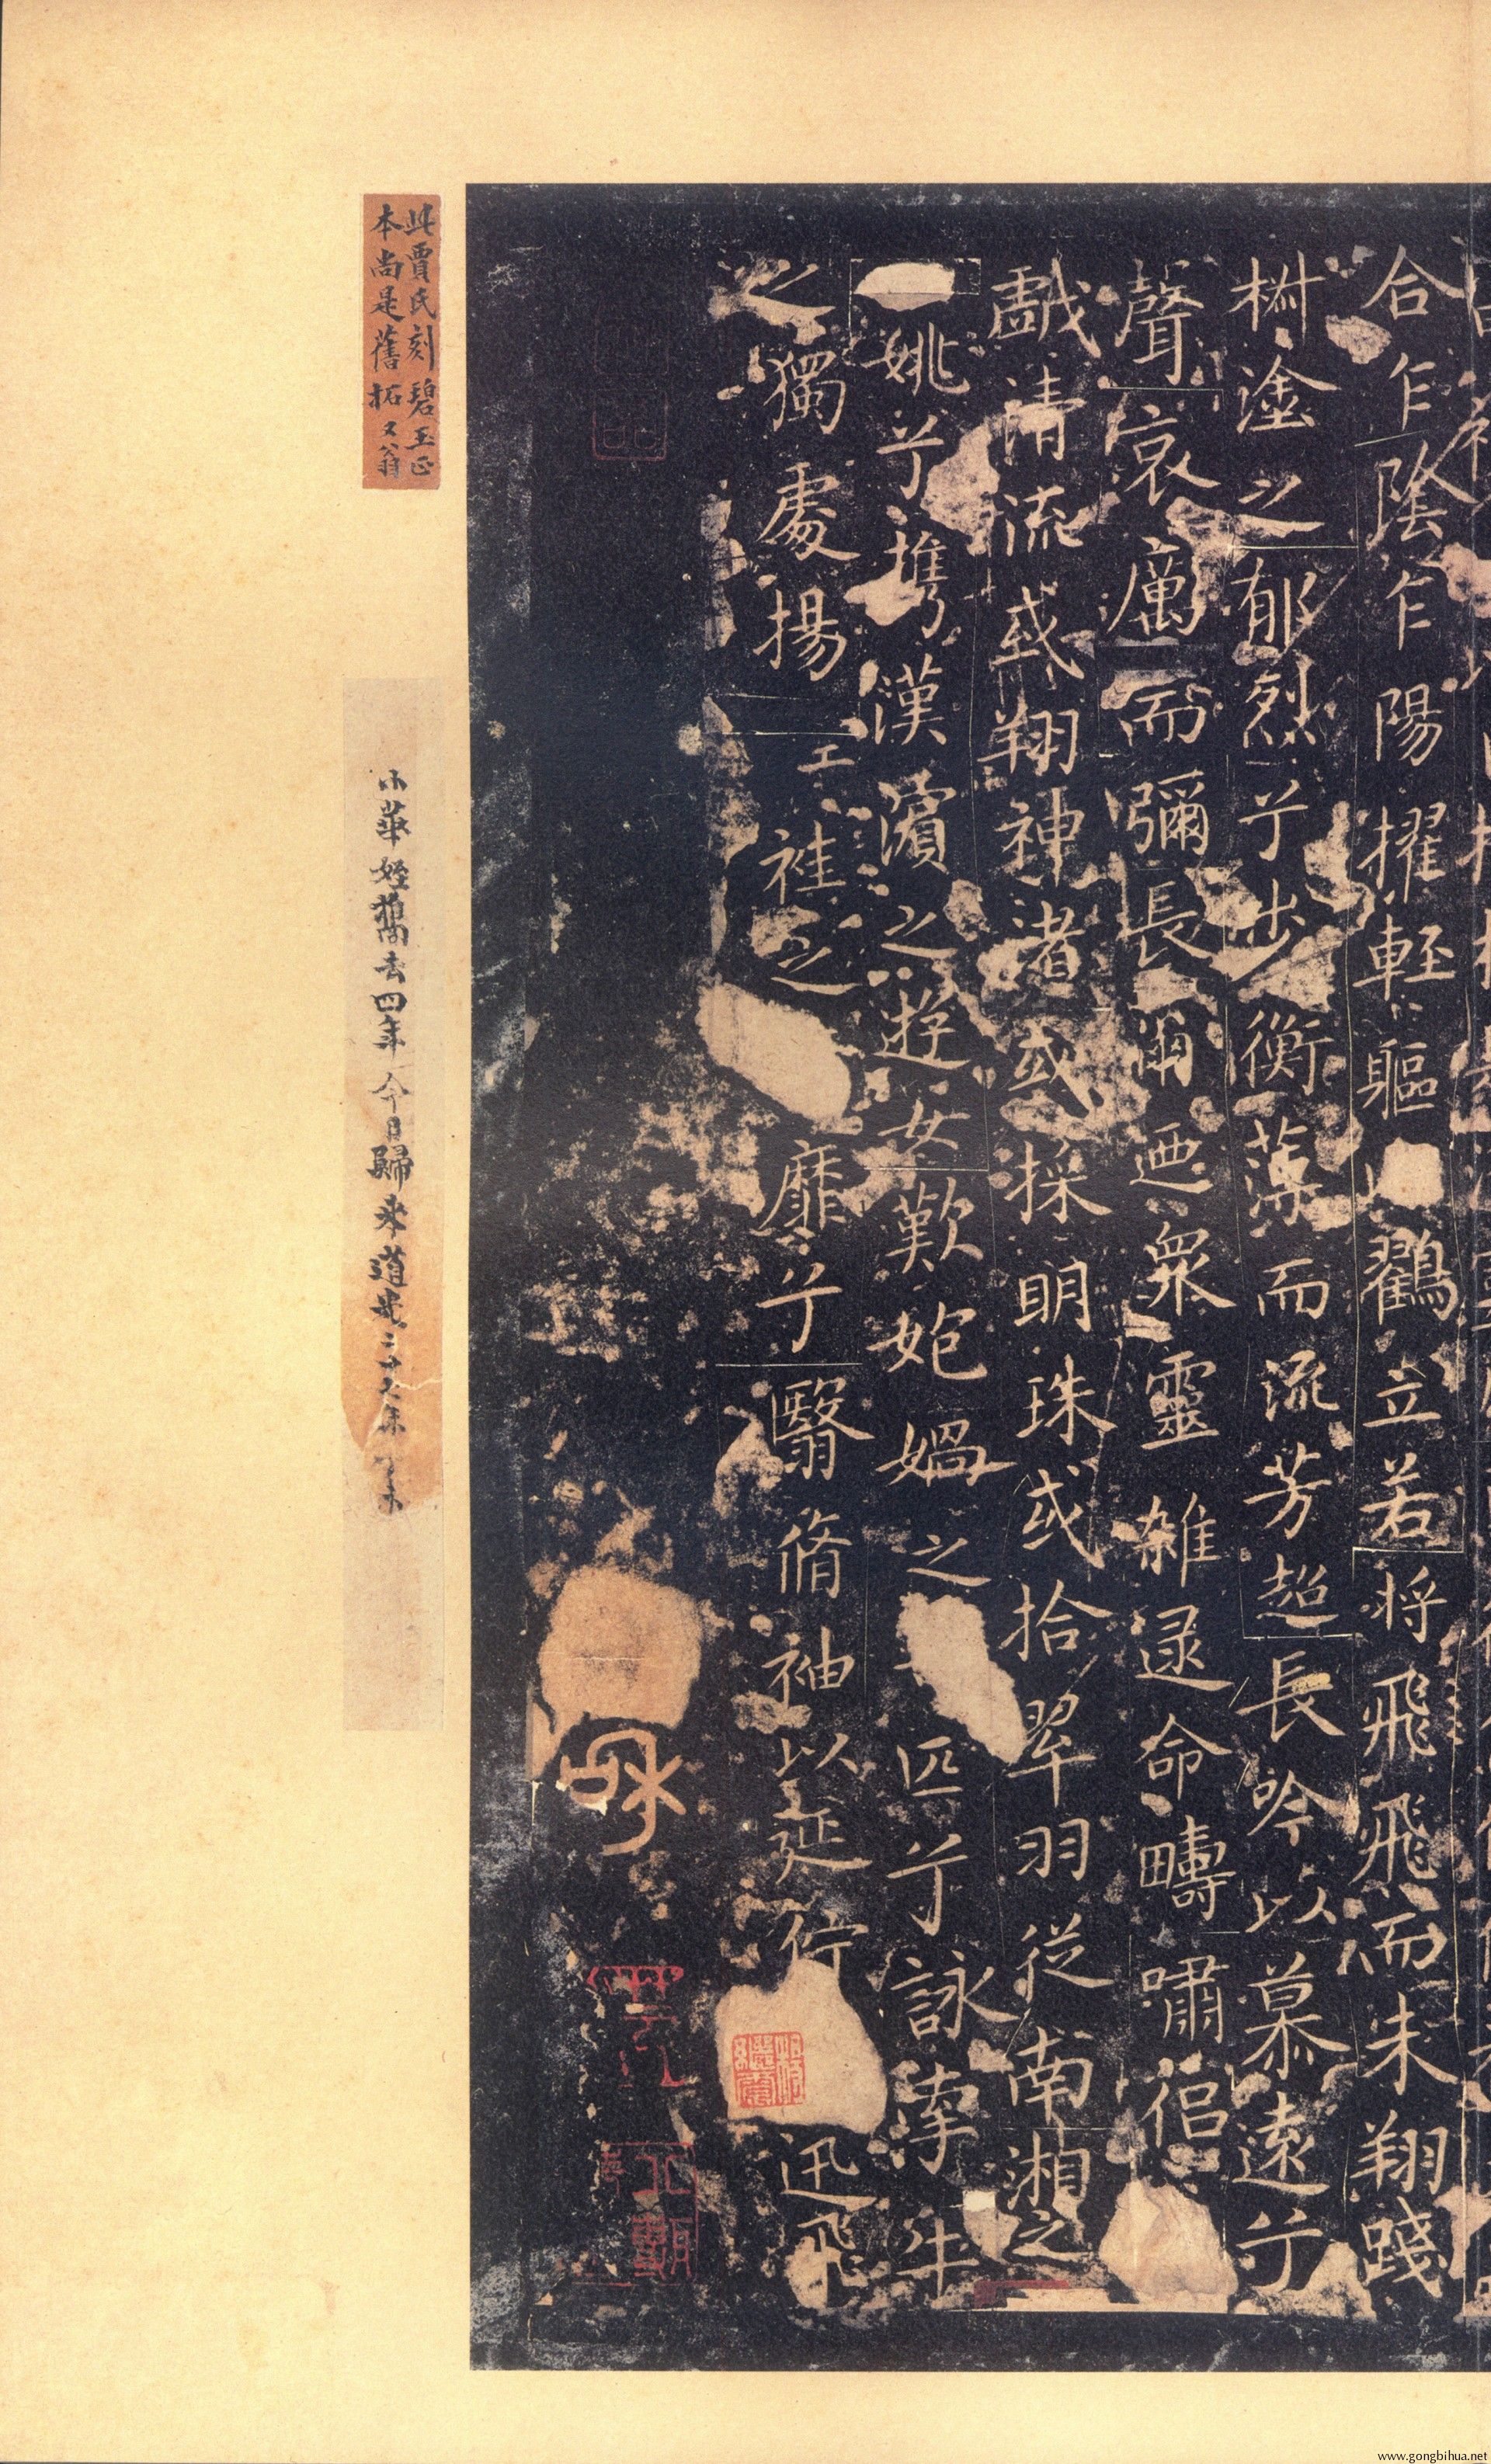 合乍陰乍陽擢輕軀鸖立若将飛飛而未翔踐
樹塗之郁烈兮步衡薄而流芳超長吟以慕遠兮
聲哀厲而彌長爾迺衆靈雜遝命疇嘯侣
戲清流或翔神渚或採明珠或拾翠羽從南湘之
姚兮攜漢濱之遊女歎妃媧之匹兮詠牽牛
之獨處揚袿之靡兮翳脩袖以延佇迅飛
此賈氏刻碧玉正
本尚是舊拓叉翁
小華姪攜去四年今日歸來道光二十七年
www.gongbihua.net